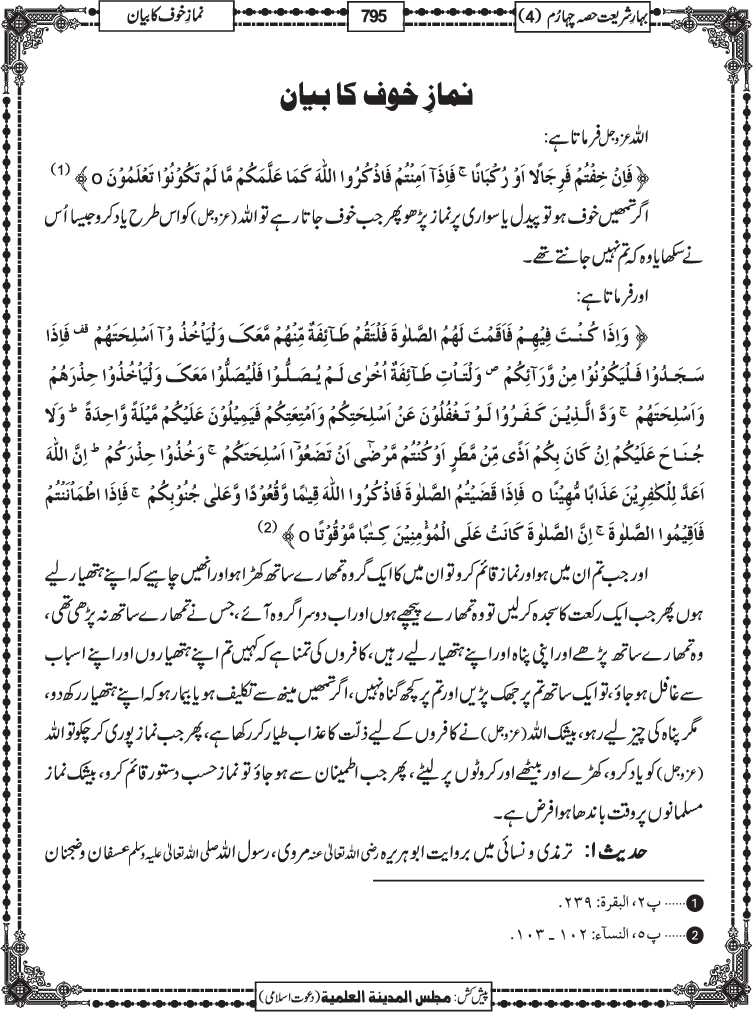 بہارِ شریعت حصہ چہارم (4)
795
نمازِ خوف کا بیان
نمازِ خوف کا بیان
اللہ عزوجل فرماتا ہے:
﴿ فَاِنْ خِفْتُمْ فَرِجَالًا اَوْ رُكْبَانًا ۚ فَاِذَاۤ اَمِنْتُمْ فَاذْكُرُوا اللّٰهَ كَمَا عَلَّمَكُمْ مَّا لَمْ تَكُوْنُوْا تَعْلَمُوْنَ o ﴾ (1)
اگر تمھیں خوف ہو تو پیدل یا سواری پر نماز پڑھو پھر جب خوف جاتا رہے تو اللہ (عزوجل) کو اس طرح یاد کرو جیسا اُس
نے سکھایا وہ کہ تم نہیں جانتے تھے۔
اور فرماتا ہے:
﴿ وَاِذَا كُنْتَ فِيْهِمْ فَاَقَمْتَ لَهُمُ الصَّلٰوةَ فَلْتَقُمْ طَآئِفَةٌ مِّنْهُمْ مَّعَكَ وَلْيَاْخُذُ وْۤا اَسْلِحَتَهُمْ قف فَاِذَا
سَجَدُوْا فَلْيَكُوْنُوْا مِنْ وَّرَآئِكُمْ ص وَلْتَاْتِ طَآئِفَةٌ اُخْرٰى لَمْ يُصَلُّوْا فَلْيُصَلُّوْا مَعَكَ وَلْيَاْخُذُوْا حِذْرَهُمْ
وَاَسْلِحَتَهُمْ ۚ وَدَّ الَّذِيْنَ كَفَرُوْا لَوْ تَغْفُلُوْنَ عَنْ اَسْلِحَتِكُمْ وَاَمْتِعَتِكُمْ فَيَمِيْلُوْنَ عَلَيْكُمْ مَّيْلَةً وَّاحِدَةً ؕ وَلَا
جُنَاحَ عَلَيْكُمْ اِنْ كَانَ بِكُمْ اَذًى مِّنْ مَّطَرٍ اَوْ كُنْتُمْ مَّرْضٰۤى اَنْ تَضَعُوْۤا اَسْلِحَتَكُمْ ۚ وَخُذُوْا حِذْرَكُمْ ؕ اِنَّ اللّٰهَ
اَعَدَّ لِلْكٰفِرِيْنَ عَذَابًا مُّهِيْنًا o فَاِذَا قَضَيْتُمُ الصَّلٰوةَ فَاذْكُرُوا اللّٰهَ قِيٰمًا وَّقُعُوْدًا وَّعَلٰى جُنُوْبِكُمْ ۚ فَاِذَا اطْمَاْنَنْتُمْ
فَاَقِيْمُوا الصَّلٰوةَ ۚ اِنَّ الصَّلٰوةَ كَانَتْ عَلَى الْمُؤْمِنِيْنَ كِتٰبًا مَّوْقُوْتًا o ﴾ (2)
اور جب تم ان میں ہو اور نماز قائم کرو تو ان میں کا ایک گروہ تمھارے ساتھ کھڑا ہو اور انھیں چاہیے کہ اپنے ہتھیار لیے
ہوں پھر جب ایک رکعت کا سجدہ کرلیں تو وہ تمھارے پیچھے ہوں اور اب دوسرا گروہ آئے، جس نے تمھارے ساتھ نہ پڑھی تھی،
وہ تمھارے ساتھ پڑھے اور اپنی پناہ اور اپنے ہتھیار لیے رہیں، کافروں کی تمنا ہے کہ کہیں تم اپنے ہتھیاروں اور اپنے اسباب
سے غافل ہو جاؤ، تو ایک ساتھ تم پر جھک پڑیں اور تم پر کچھ گناہ نہیں، اگر تمھیں مینھ سے تکلیف ہو یا بیمار ہو کہ اپنے ہتھیار رکھ دو،
مگر پناہ کی چیز لیے رہو، بیشک اللہ (عزوجل) نے کافروں کے لیے ذلّت کا عذاب طیار کر رکھا ہے، پھر جب نماز پوری کر چکو تو اللہ
(عزوجل) کو یاد کرو، کھڑے اور بیٹھے اور کروٹوں پر لیٹے، پھر جب اطمینان سے ہو جاؤ تو نماز حسب دستور قائم کرو، بیشک نماز
مسلمانوں پر وقت باندھا ہوا فرض ہے۔
حدیث ۱: ترمذی و نسائی میں بروایت ابو ہریرہ رضی اللہ تعالیٰ عنہ مروی، رسول اللہ صلی اللہ تعالیٰ علیہ وسلم عسفان و ضجنان
1 ...... پ۲، البقرۃ: ۲۳۹.
2 ...... پ۵، النسآء: ۱۰۲ ـ ۱۰۳.
پیش کش: مجلس المدینة العلمیة (دعوت اسلامی)